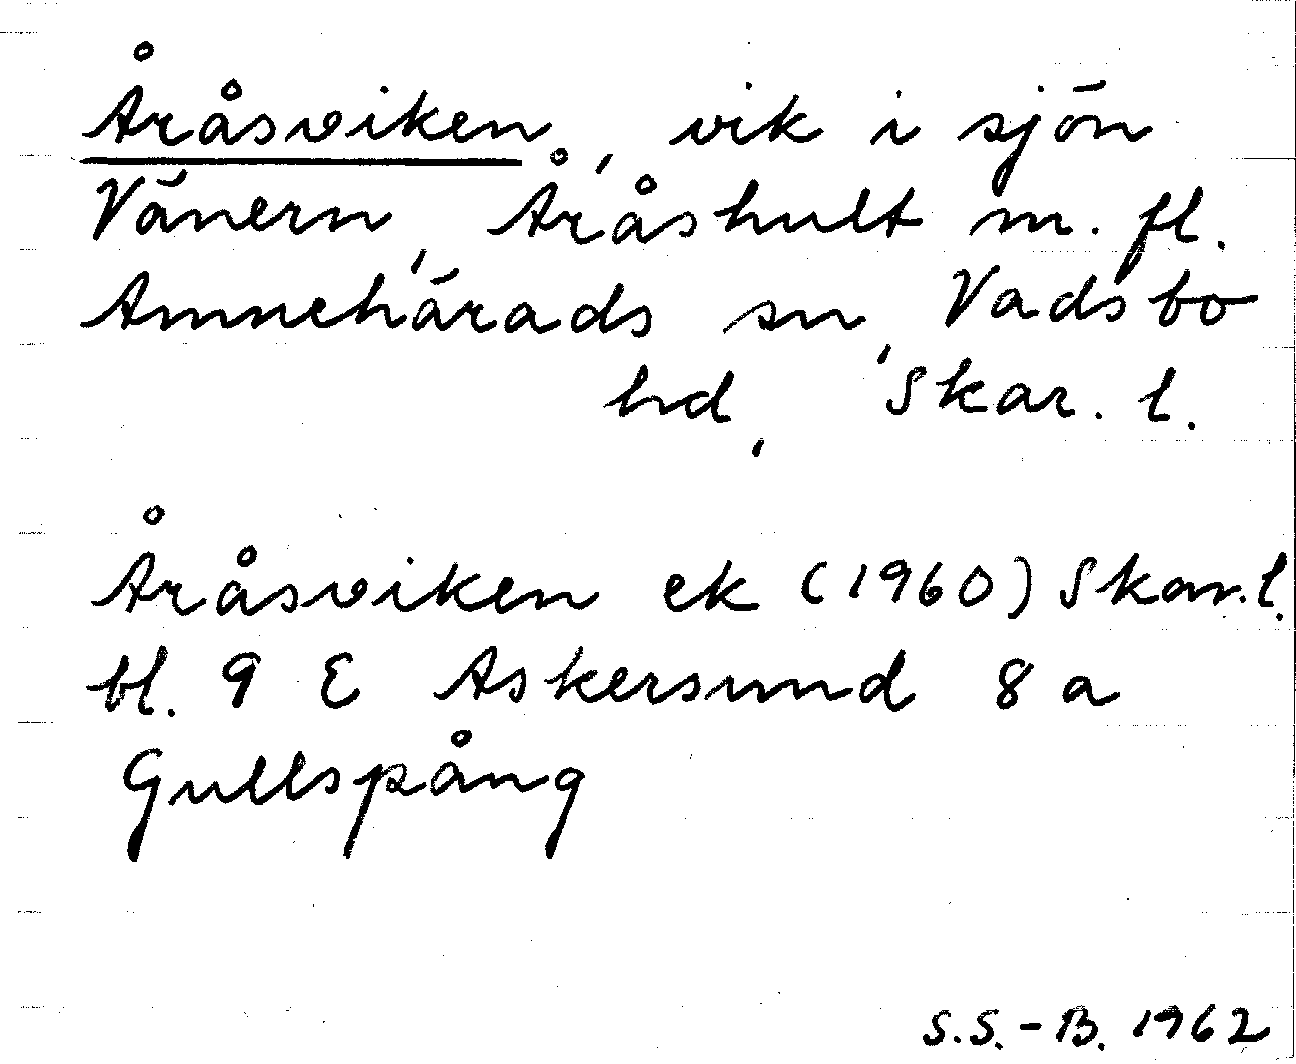 Åråsviken, vik i sjön
Vänern, Åråshult m. fl.
Amnehärads sn, Vadsbo
hd, Skar. l.
Åråsviken ek (1960) Skar. l.
bl. 9 E Askersund 8 a
Gullspång
S.S.-B. 1962